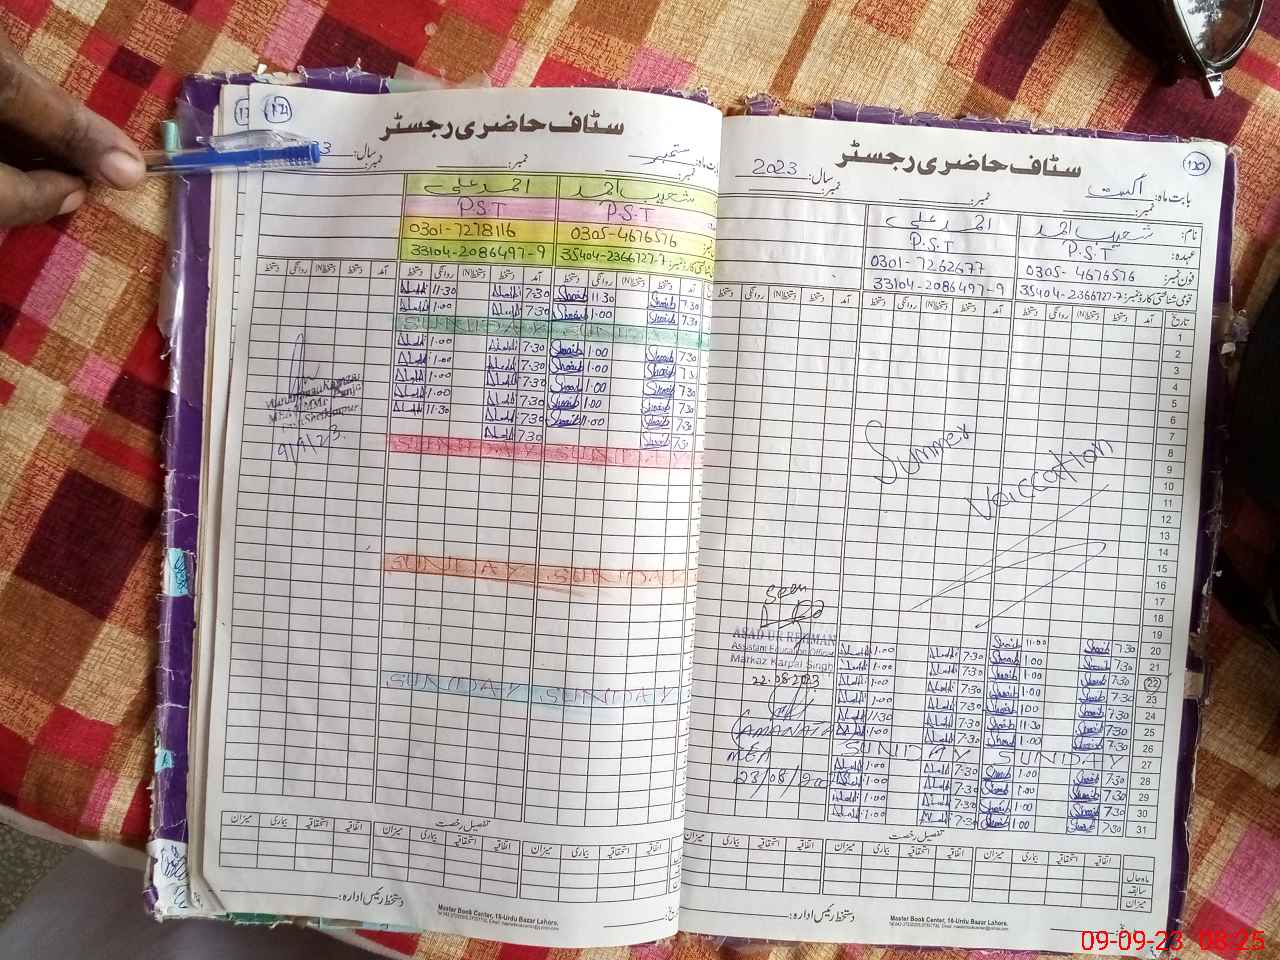 120
سٹاف حاضری رجسٹر
بابت ماہ: اگست
سال: 2023
نمبر:
نمبر:
نام: شعیب احمد
احمد علی
عہدہ: P.S.T
P.S.T
فون نمبر: 0305-4676576
0301-7262677
قومی شناختی کارڈ نمبر: 35404-2366727-7
33104-2086497-9
تاریخ آمد دستخط (N)دستخط روانگی دستخط آمد دستخط (N)دستخط روانگی دستخط
1
2
3
4
5
6
7
8
9
10
11
12
13
14
15
16
17
18
19
Summer
Vaiccation
20 7.30 Shoaib 11.00 Shoaib
21 7.30 Shoaib 1.00 Shoaib 7.30 1.00
22 7.30 Shoaib 1.00 Shoaib 7.30 1.00
23 7.30 Shoaib 1.00 Shoaib 7.30 1.00
24 7.30 Shoaib 1.00 Shoaib 7.30 1.00
25 7.30 Shoaib 11.30 Shoaib 7.30 11.30
26 7.30 Shoaib 1.00 Shoaib 7.30 1.00
27 SUNDAY SUNDAY
28 7.30 Shoaib 1.00 Shoaib 7.30 1.00
29 7.30 Shoaib 1.00 Shoaib 7.30 1.00
30 7.30 Shoaib 1.00 Shoaib 7.30 1.00
31 7.30 Shoaib 1.00 Shoaib 7.30 1.00
Seen
ASAD UR REHMAN
Assistant Education Officer
Markaz Karpal Singh
22.08.2023
AMANAT
MEA
23/08/20
تفصیل رخصت
اتفاقیہ استحقاقیہ بیماری میزان اتفاقیہ استحقاقیہ بیماری میزان
ماہ حال
سابقہ
میزان
دستخط رئیس ادارہ:
Master Book Center, 16-Urdu Bazar Lahore.
121
سٹاف حاضری رجسٹر
بابت ماہ: ستمبر
سال: 3
نمبر:
نمبر:
شعیب احمد
احمد علی
P.S.T
P.S.T
0305-4676576
0301-7278116
35404-2366727-7
33104-2086497-9
آمد دستخط (N)دستخط روانگی دستخط آمد دستخط (N)دستخط روانگی دستخط
7.30 Shoaib 11.30 Shoaib 7.30 11.30
7.30 Shoaib 1.00 Shoaib 7.30 1.00
SUNDAY SUNDAY
7.30 Shoaib 1.00 Shoaib 7.30 1.00
7.30 Shoaib 1.00 Shoaib 7.30 1.00
7.30 Shoaib 1.00 Shoaib 7.30 1.00
7.30 Shoaib 1.00 Shoaib 7.30 1.00
7.30 Shoaib 11.00 Shoaib 7.30 11.30
7.30 Shoaib 7.30
SUNDAY SUNDAY
SUNDAY SUNDAY
SUNDAY SUNDAY
9/9/23.
تفصیل رخصت
اتفاقیہ استحقاقیہ بیماری میزان اتفاقیہ استحقاقیہ بیماری میزان
دستخط رئیس ادارہ:
Master Book Center, 16-Urdu Bazar Lahore.
09-09-23 08:25